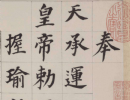 奉
天承運
皇帝勅
握瑜